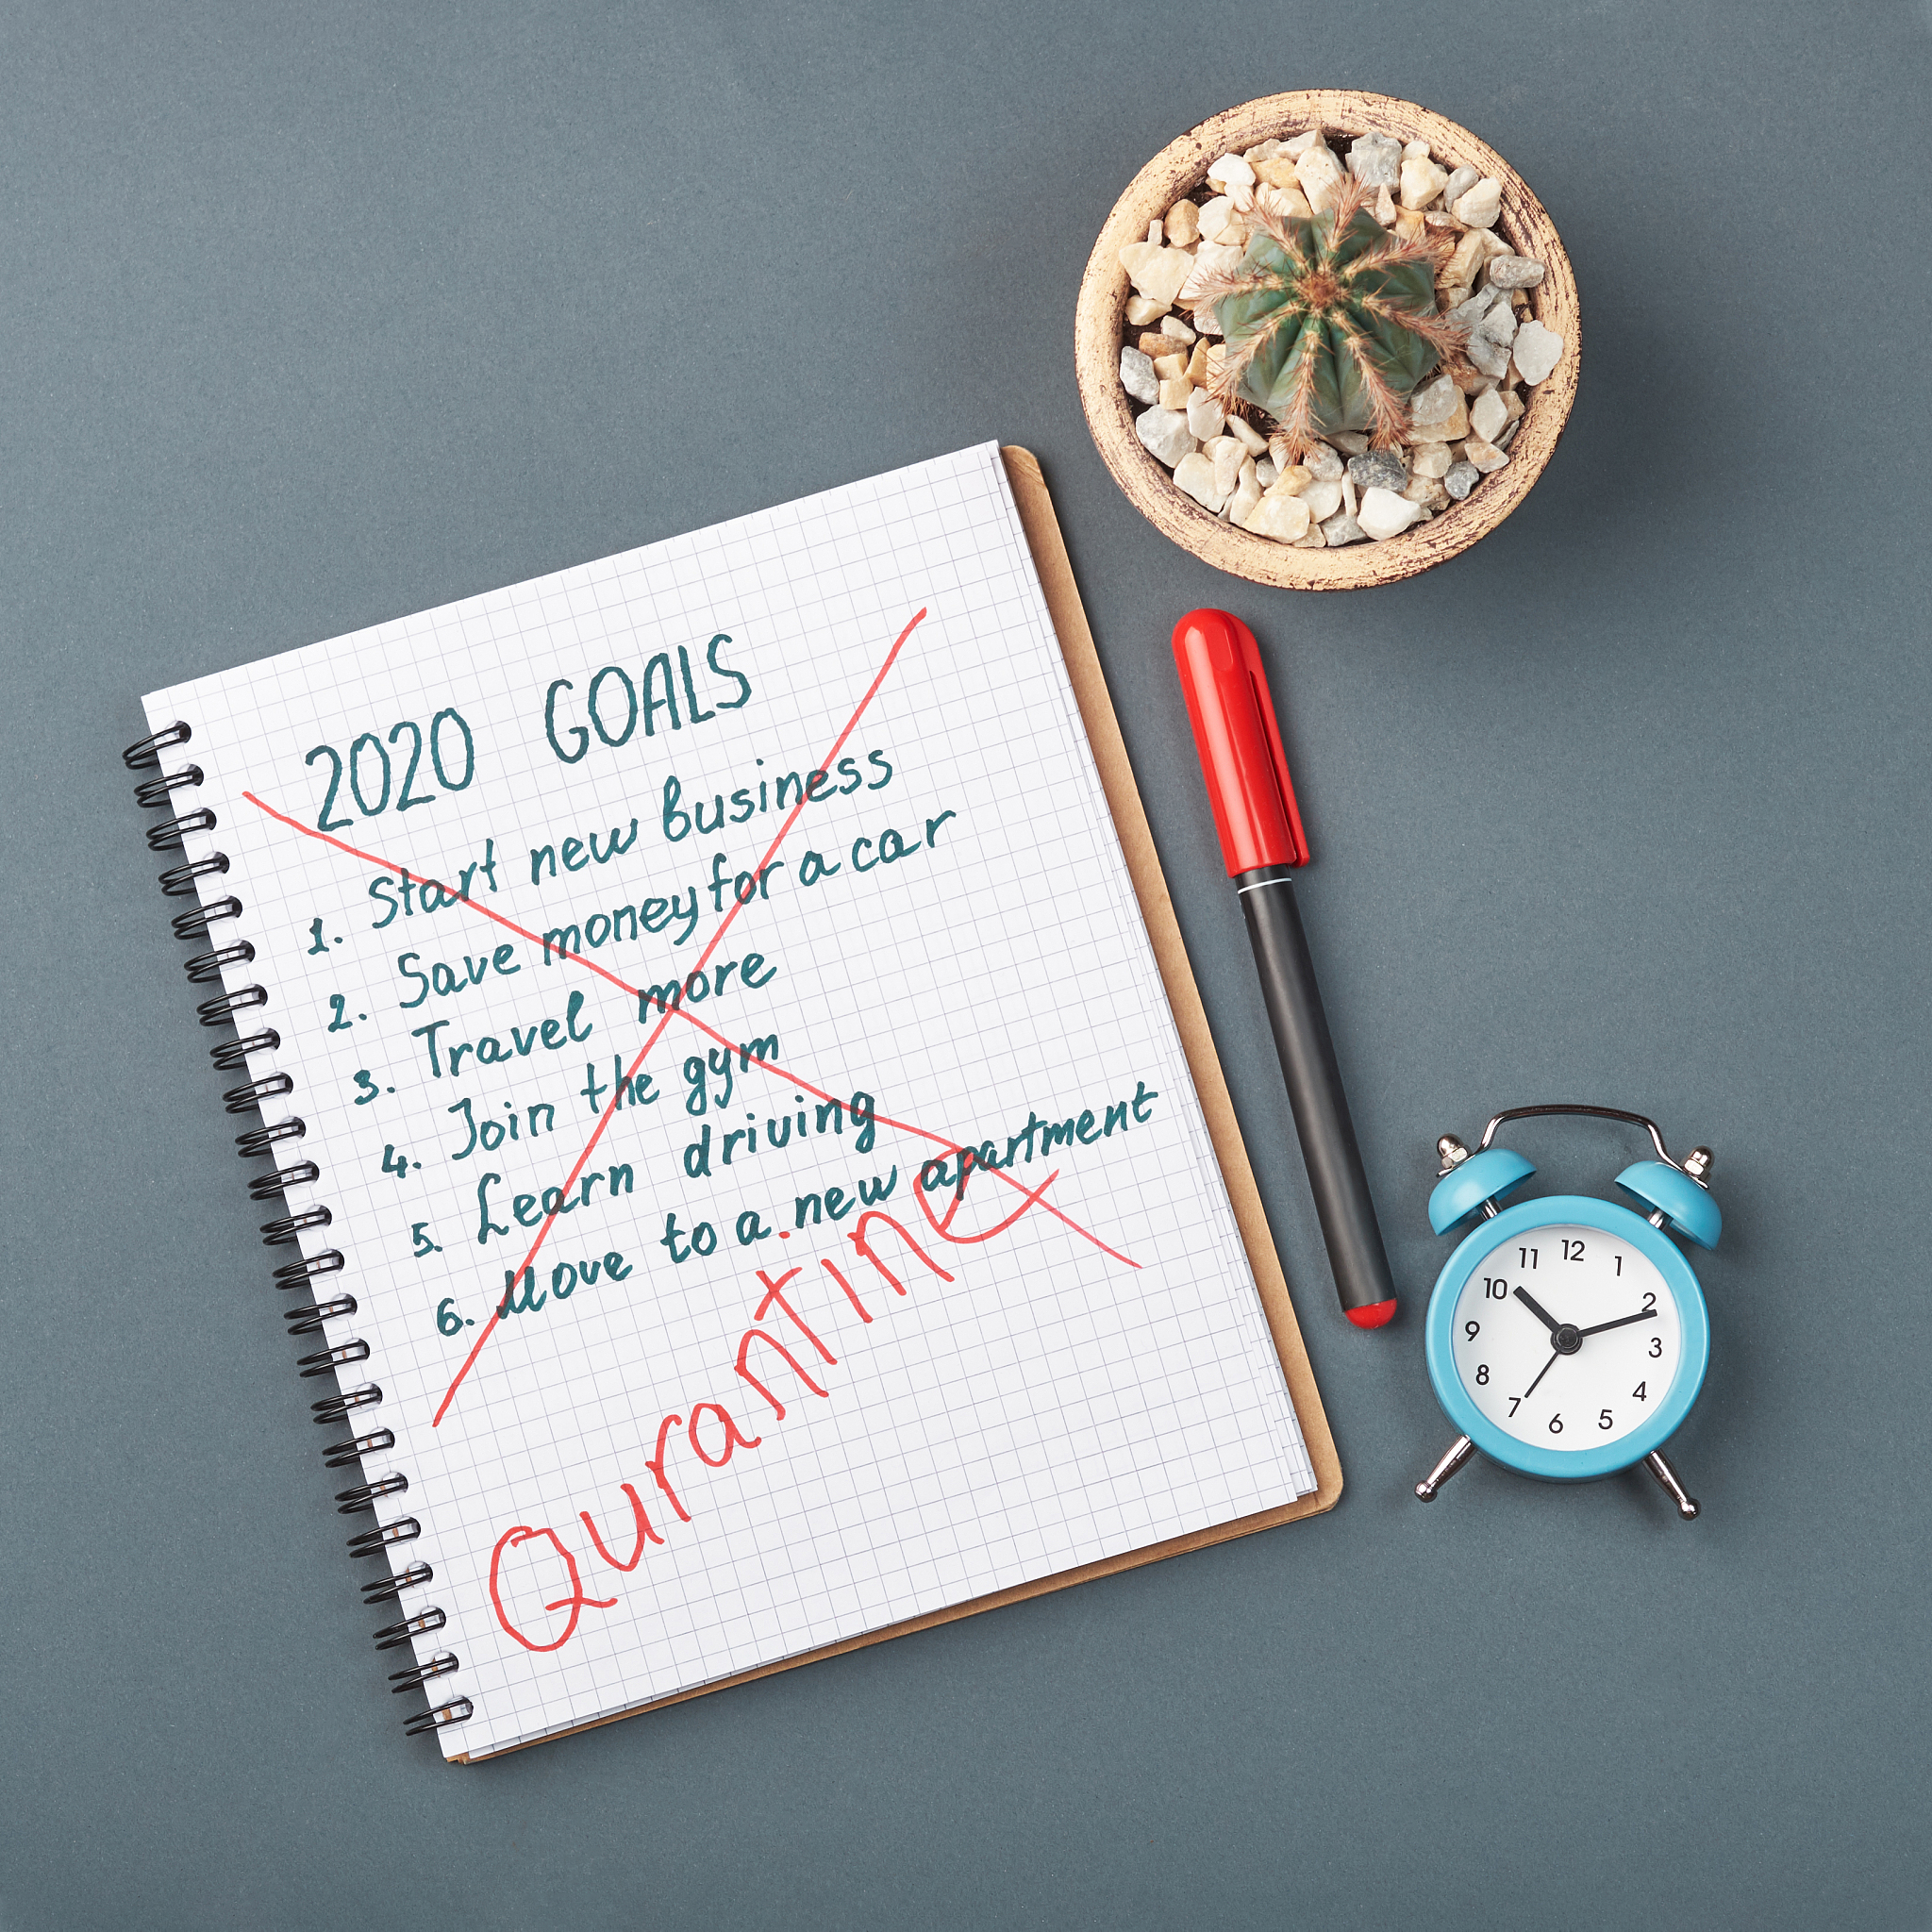 2020 GOALS
1. Start new business
2. Save money for a car
3. Travel more
4. Join the gym
5. Learn driving
6. Move to a new apartment
Qurantine
12
1
2
3
4
5
6
7
8
9
10
11